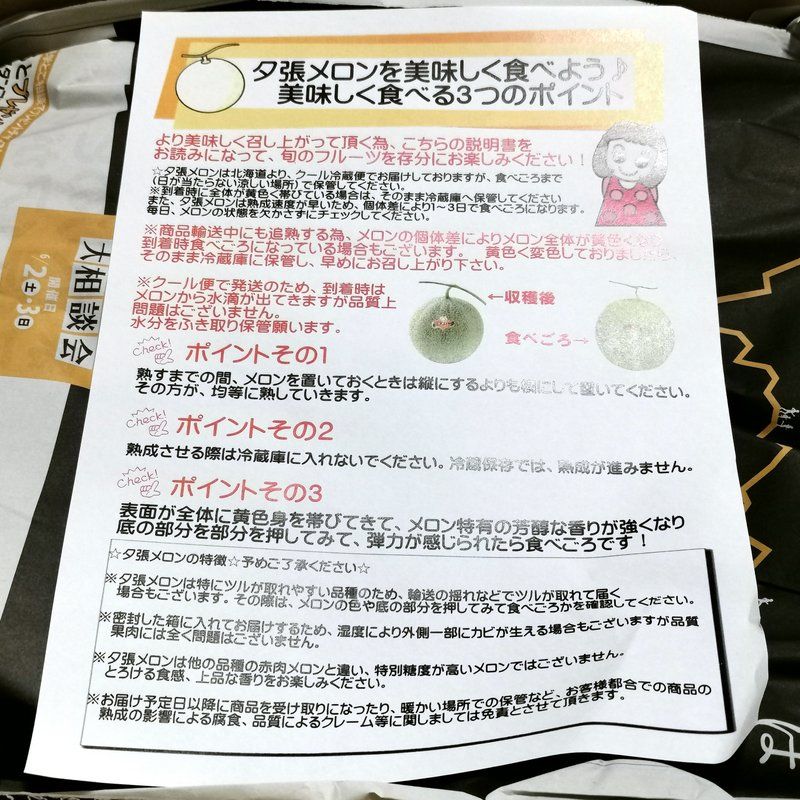 夕張メロンを美味しく食べよう♪
美味しく食べる3つのポイント
より美味しく召し上がって頂く為、こちらの説明書を
お読みになって、旬のフルーツを存分にお楽しみください!
☆夕張メロンは北海道より、クール冷蔵便でお届けしておりますが、食べごろまで
(日が当たらない涼しい場所)で保管してください。
※到着時に全体が黄色く帯びている場合は、そのまま冷蔵庫へ保管してください
また、夕張メロンは熟成速度が早いため、個体差により1~3日で食べごろになります。
毎日、メロンの状態を欠かさずにチェックしてください。
※商品輸送中にも追熟する為、メロンの個体差によりメロン全体が黄色くなり
到着時食べごろになっている場合もございます。 黄色く変色しておりましたら、
そのまま冷蔵庫に保管し、早めにお召し上がり下さい。
※クール便で発送のため、到着時は
メロンから水滴が出てきますが品質上
問題はございません。
水分をふき取り保管願います。
←収穫後
食べごろ→
Check!
ポイントその1
熟すまでの間、メロンを置いておくときは縦にするよりも横にして置いてください。
その方が、均等に熟していきます。
Check!
ポイントその2
熟成させる際は冷蔵庫に入れないでください。冷蔵保存では、熟成が進みません。
Check!
ポイントその3
表面が全体に黄色身を帯びてきて、メロン特有の芳醇な香りが強くなり
底の部分を部分を押してみて、弾力が感じられたら食べごろです!
☆夕張メロンの特徴☆予めご了承ください☆
※夕張メロンは特にツルが取れやすい品種のため、輸送の揺れなどでツルが取れて届く
場合もございます。その際は、メロンの色や底の部分を押してみて食べごろかを確認してください。
※密封した箱に入れてお届けするため、湿度により外側一部にカビが生える場合もございますが品質
果肉には全く問題はございません。
※夕張メロンは他の品種の赤肉メロンと違い、特別糖度が高いメロンではございません。
とろける食感、上品な香りをお楽しみください。
※お届け予定日以降に商品を受け取りになったり、暖かい場所での保管など、お客様都合での商品の
熟成の影響による腐食、品質によるクレーム等に関しましては免責とさせて頂きます。
大相談会
開催日
6/2土・3日
は